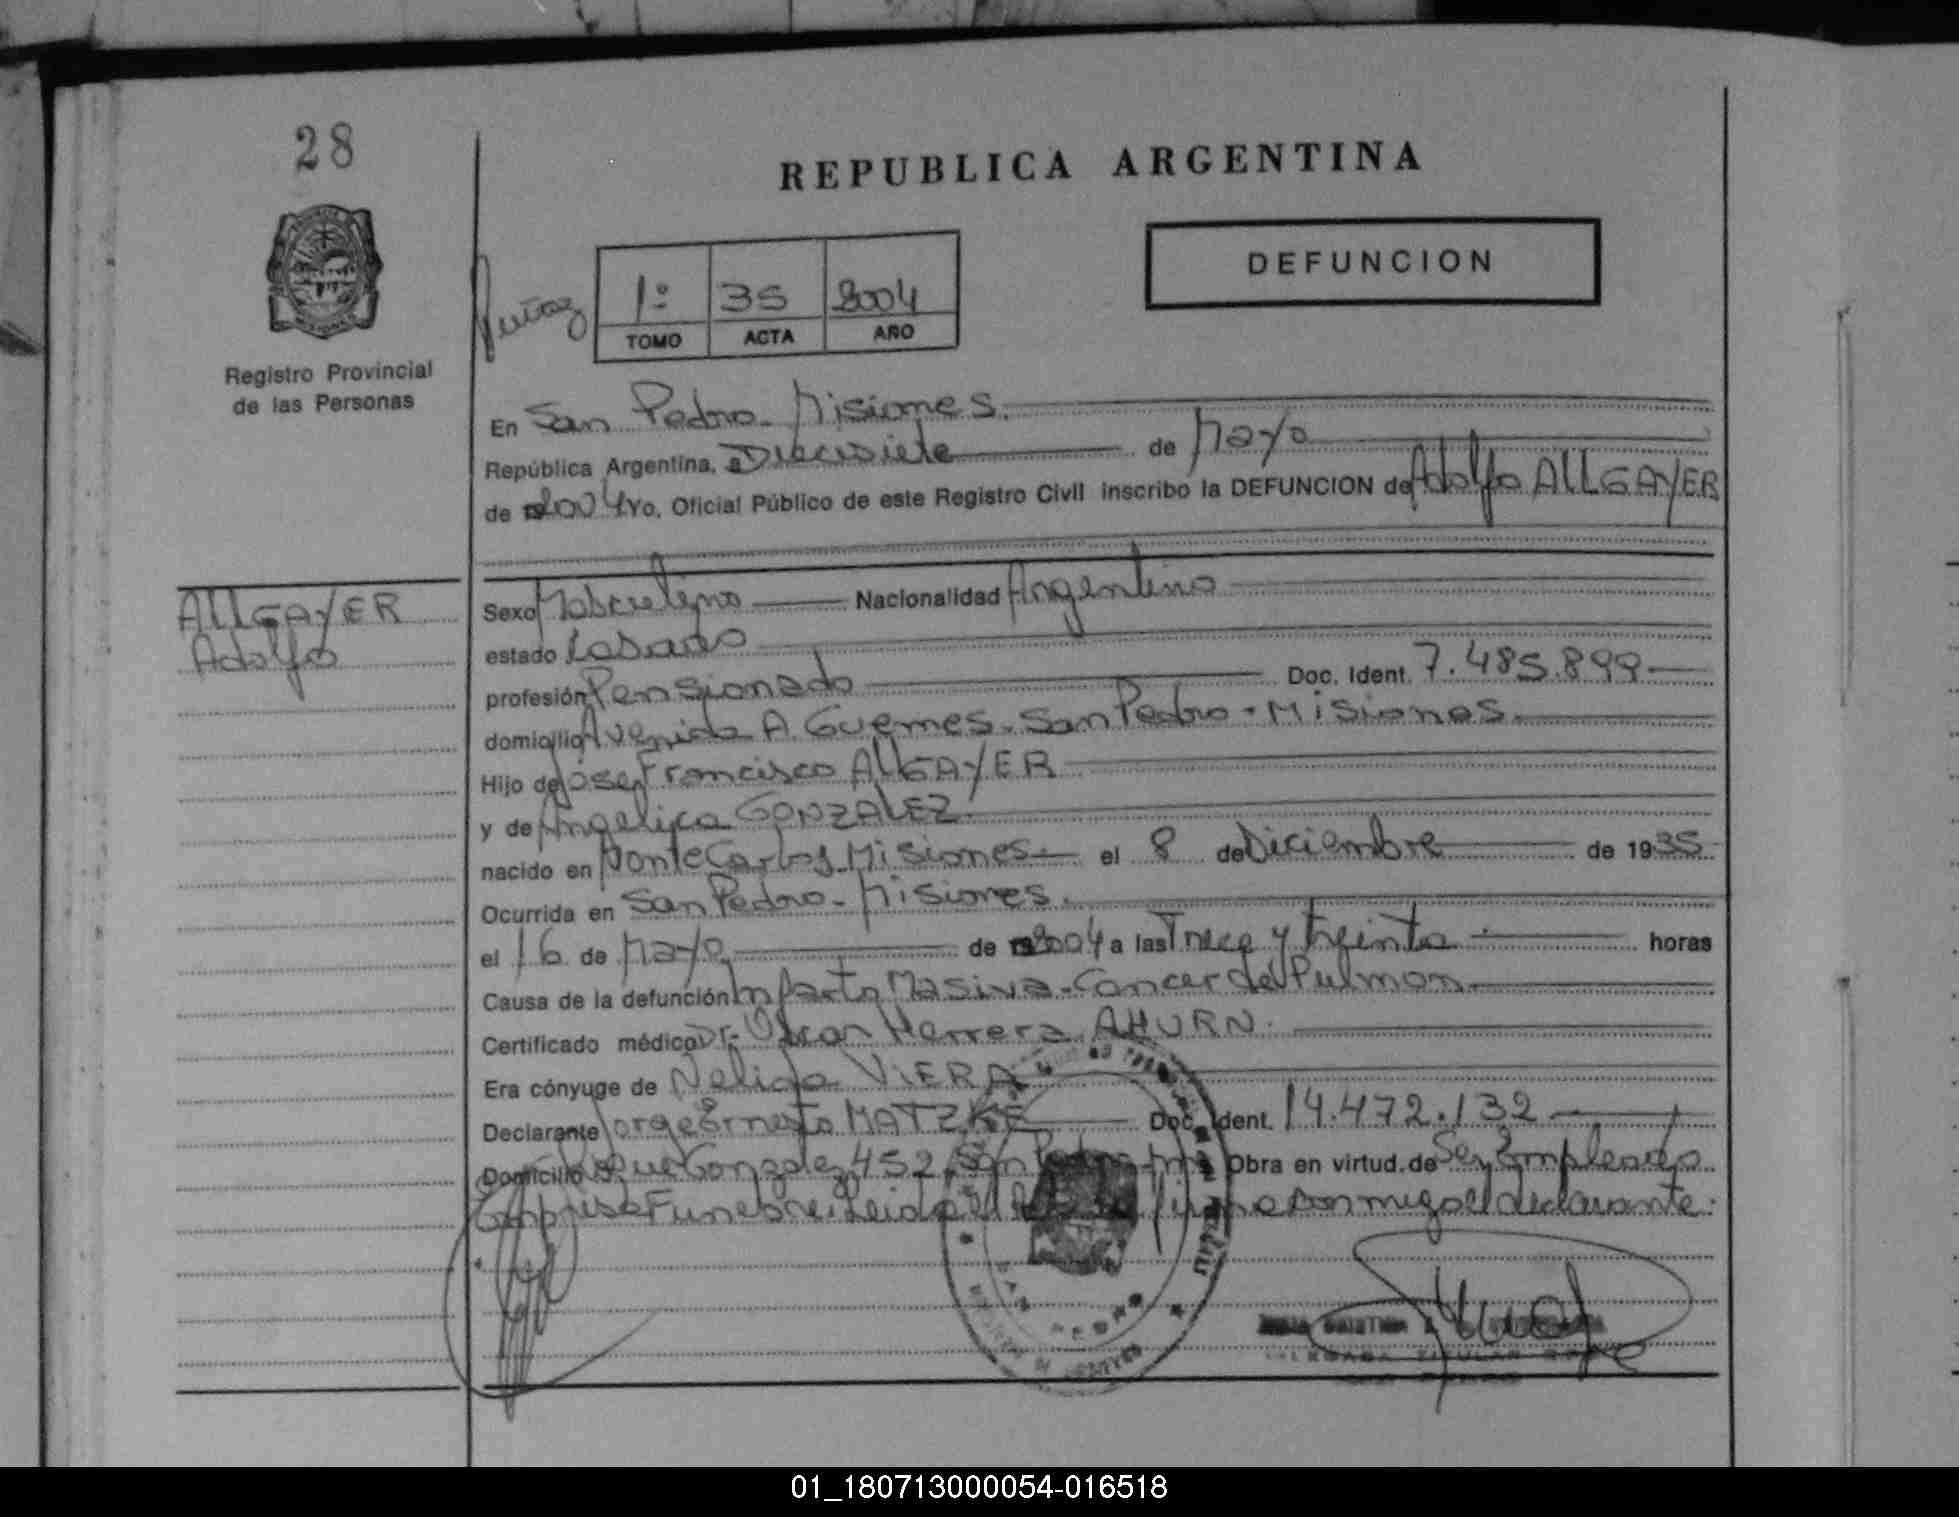 28
REPUBLICA ARGENTINA
DEFUNCION
1º 35 2004
TOMO ACTA AÑO
Registro Provincial
de las Personas
En San Pedro - Misiones.
República Argentina, a Diecisiete de Mayo
de 2004 Yo, Oficial Público de este Registro Civil inscribo la DEFUNCION de Adolfo ALLGAYER
ALLGAYER
Adolfo
Sexo Masculino Nacionalidad Argentino
estado Casado
profesión Pensionado Doc. Ident. 7.485.899
domicilio Avenida A. Guemes - San Pedro - Misiones.
Hijo de José Francisco ALLGAYER
y de Angelica GONZALEZ.
nacido en MonteCarlos Misiones. el 8 de Diciembre de 1935
Ocurrida en San Pedro - Misiones.
el 16 de Mayo de 2004 a las Trece y treinta horas
Causa de la defunción Infarto Masivo - Cancer de Pulmon
Certificado médico Dr. Oscar Herrera AHURN.
Era cónyuge de Nelida VIERA
Declarante Jorge Ernesto MATZKE Doc. Ident. 14.472.132
Domicilio Roque Gonzalez 452 San Pedro Mnes Obra en virtud de Ser Empleado
Empresa Funebre. Leida el Acta firma conmigo el declarante.
SAN PEDRO
01_180713000054-016518